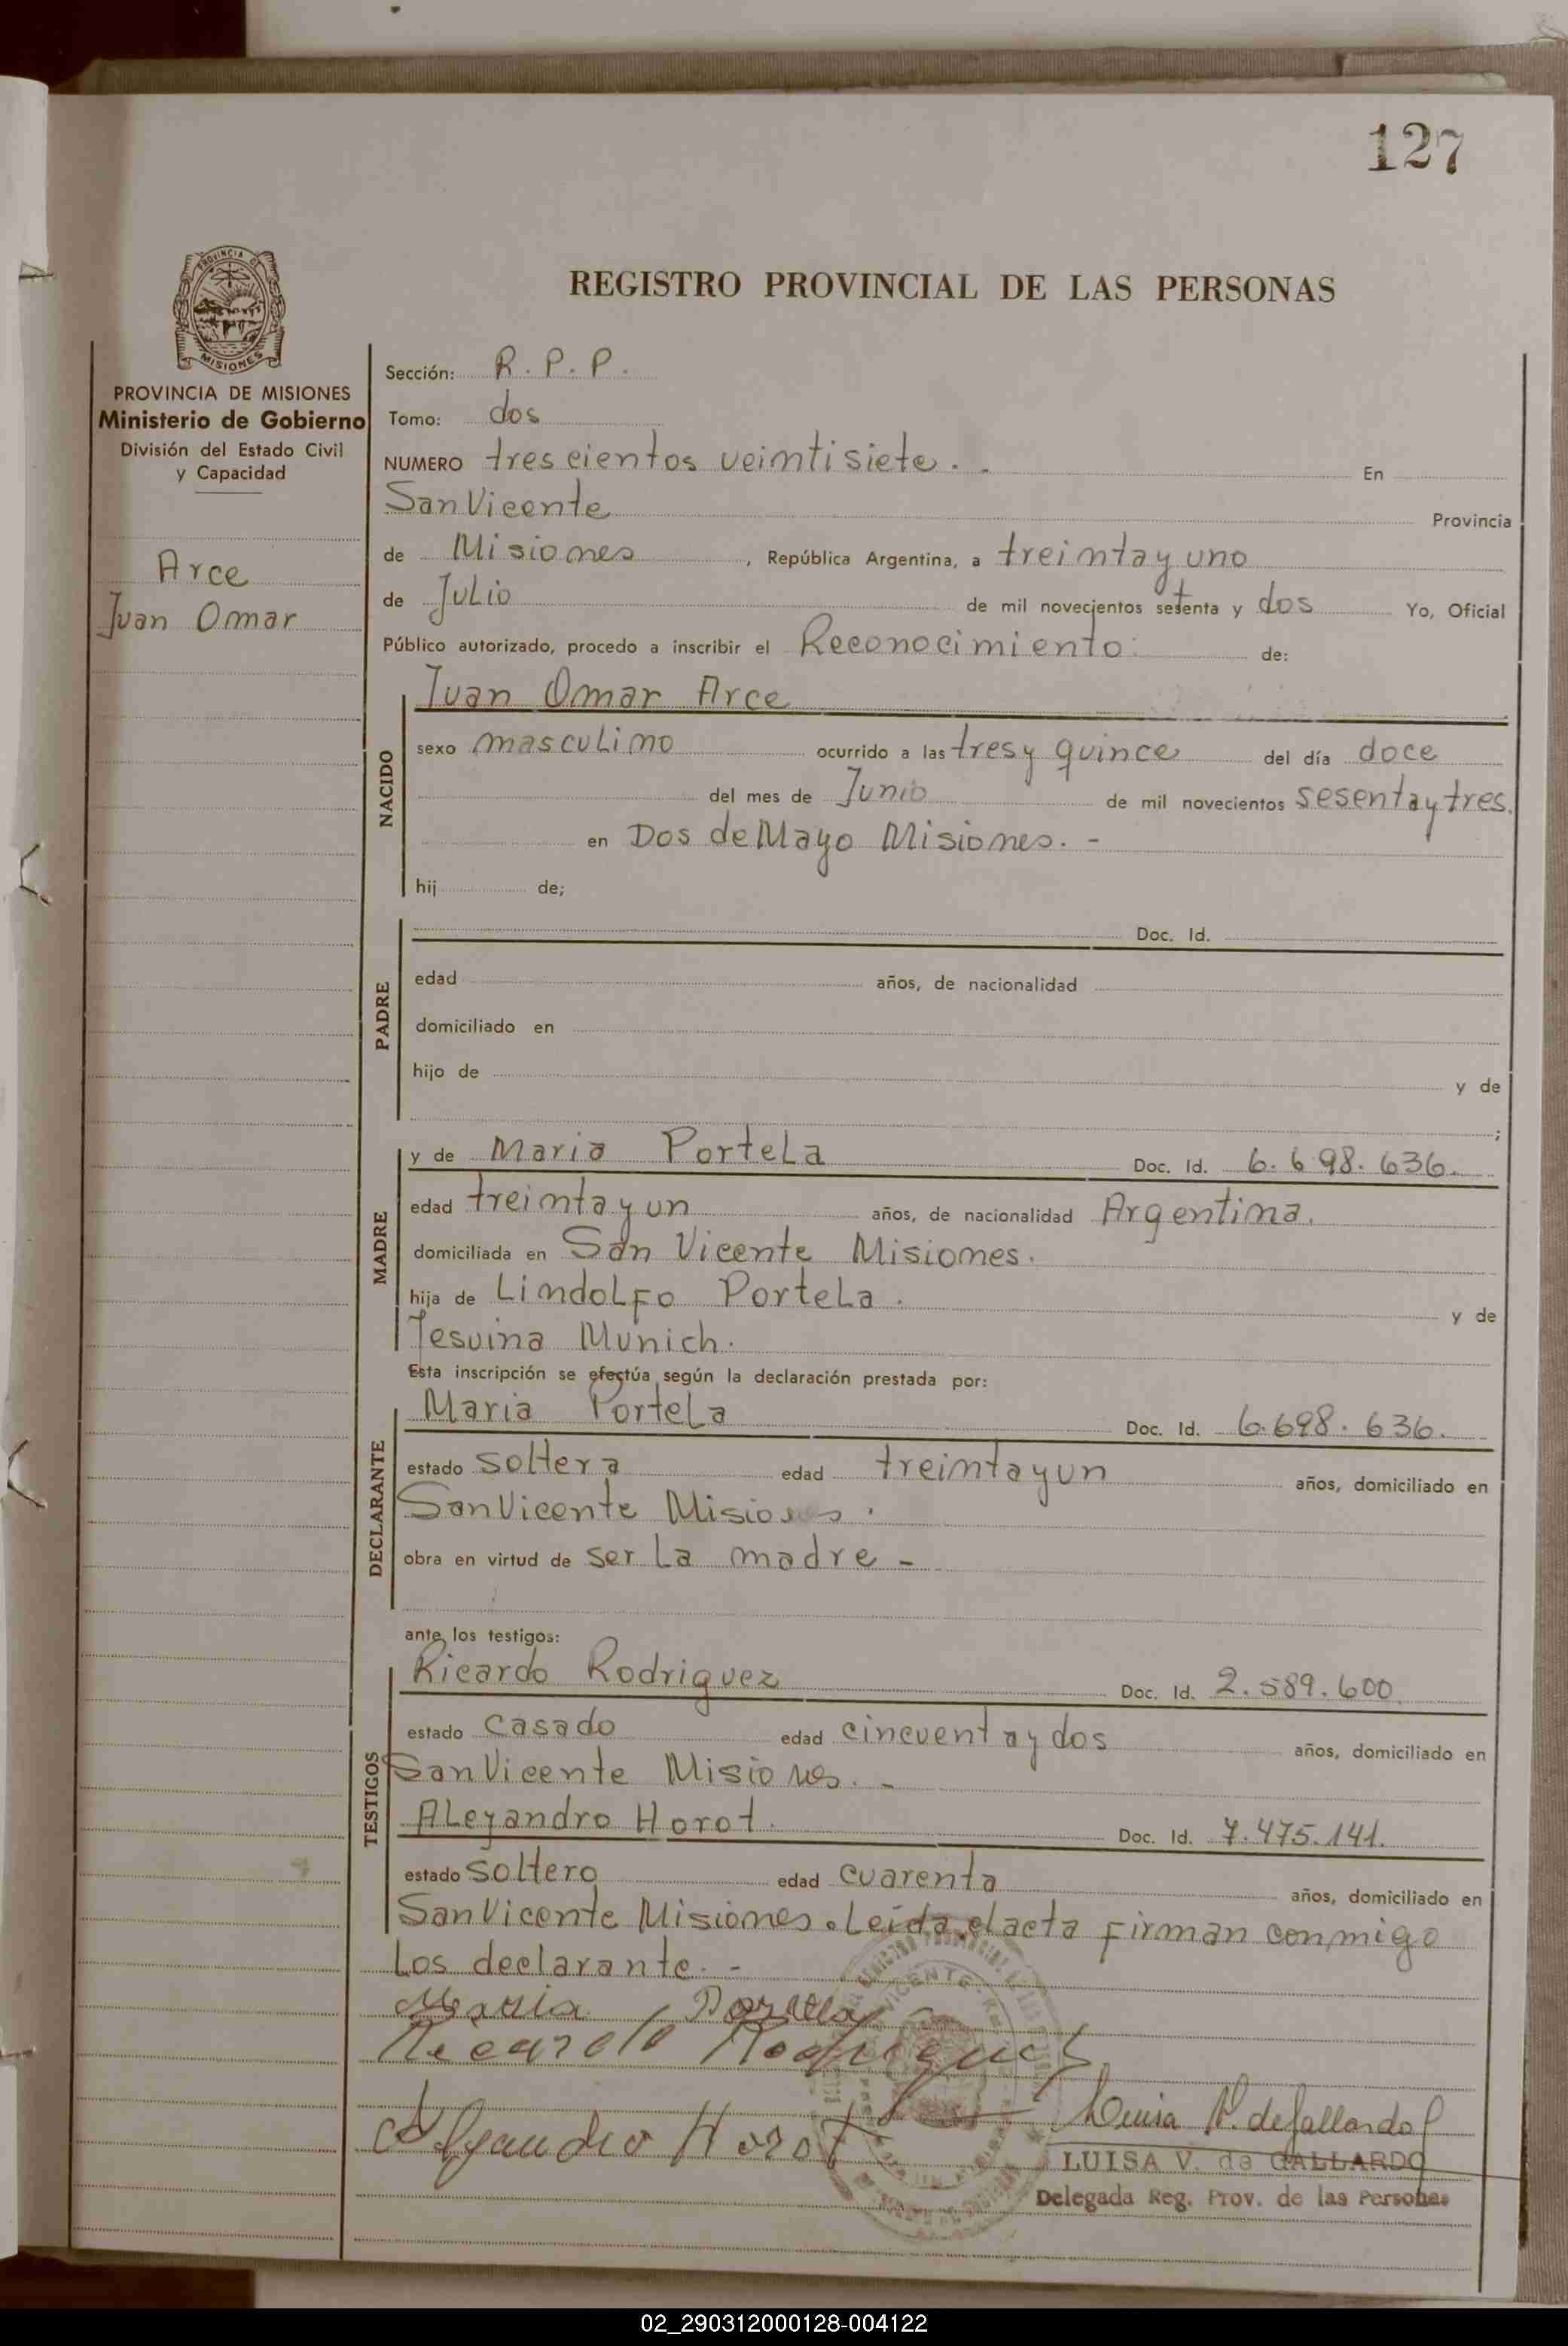 127
PROVINCIA DE
MISIONES
PROVINCIA DE MISIONES
Ministerio de Gobierno
División del Estado Civil
y Capacidad
Arce
Juan Omar
REGISTRO PROVINCIAL DE LAS PERSONAS
Sección: R. P. P.
Tomo: dos
NUMERO trescientos veintisiete. - En
San Vicente Provincia
de Misiones, República Argentina, a treinta y uno
de Julio de mil novecientos setenta y dos Yo, Oficial
Público autorizado, procedo a inscribir el Reconocimiento: de:
NACIDO
Juan Omar Arce
sexo masculino ocurrido a las tres y quince del día doce
del mes de Junio de mil novecientos sesenta y tres.
en Dos de Mayo Misiones. -
hij de;
PADRE
Doc. Id.
edad años, de nacionalidad
domiciliado en
hijo de y de
;
MADRE
y de Maria Portela Doc. Id. 6.698.636.
edad treinta y un años, de nacionalidad Argentina.
domiciliada en San Vicente Misiones.
hija de Lindolfo Portela. y de
Jesuina Munich.
Esta inscripción se efectúa según la declaración prestada por:
DECLARANTE
Maria Portela Doc. Id. 6.698.636.
estado soltera edad treinta y un años, domiciliado en
San Vicente Misiones.
obra en virtud de ser la madre -
ante los testigos:
TESTIGOS
Ricardo Rodriguez Doc. Id. 2.589.600.
estado casado edad cincuenta y dos años, domiciliado en
San Vicente Misiones. -
Alejandro Horot. Doc. Id. 7.475.141.
estado soltero edad cuarenta años, domiciliado en
San Vicente Misiones. Leida el acta firman conmigo
los declarante. -
Maria Portela
Ricardo Rodriguez
Alejandro Horot
Luisa V. de Gallardo
LUISA V. de GALLARDO
Delegada Reg. Prov. de las Personas
02_290312000128-004122